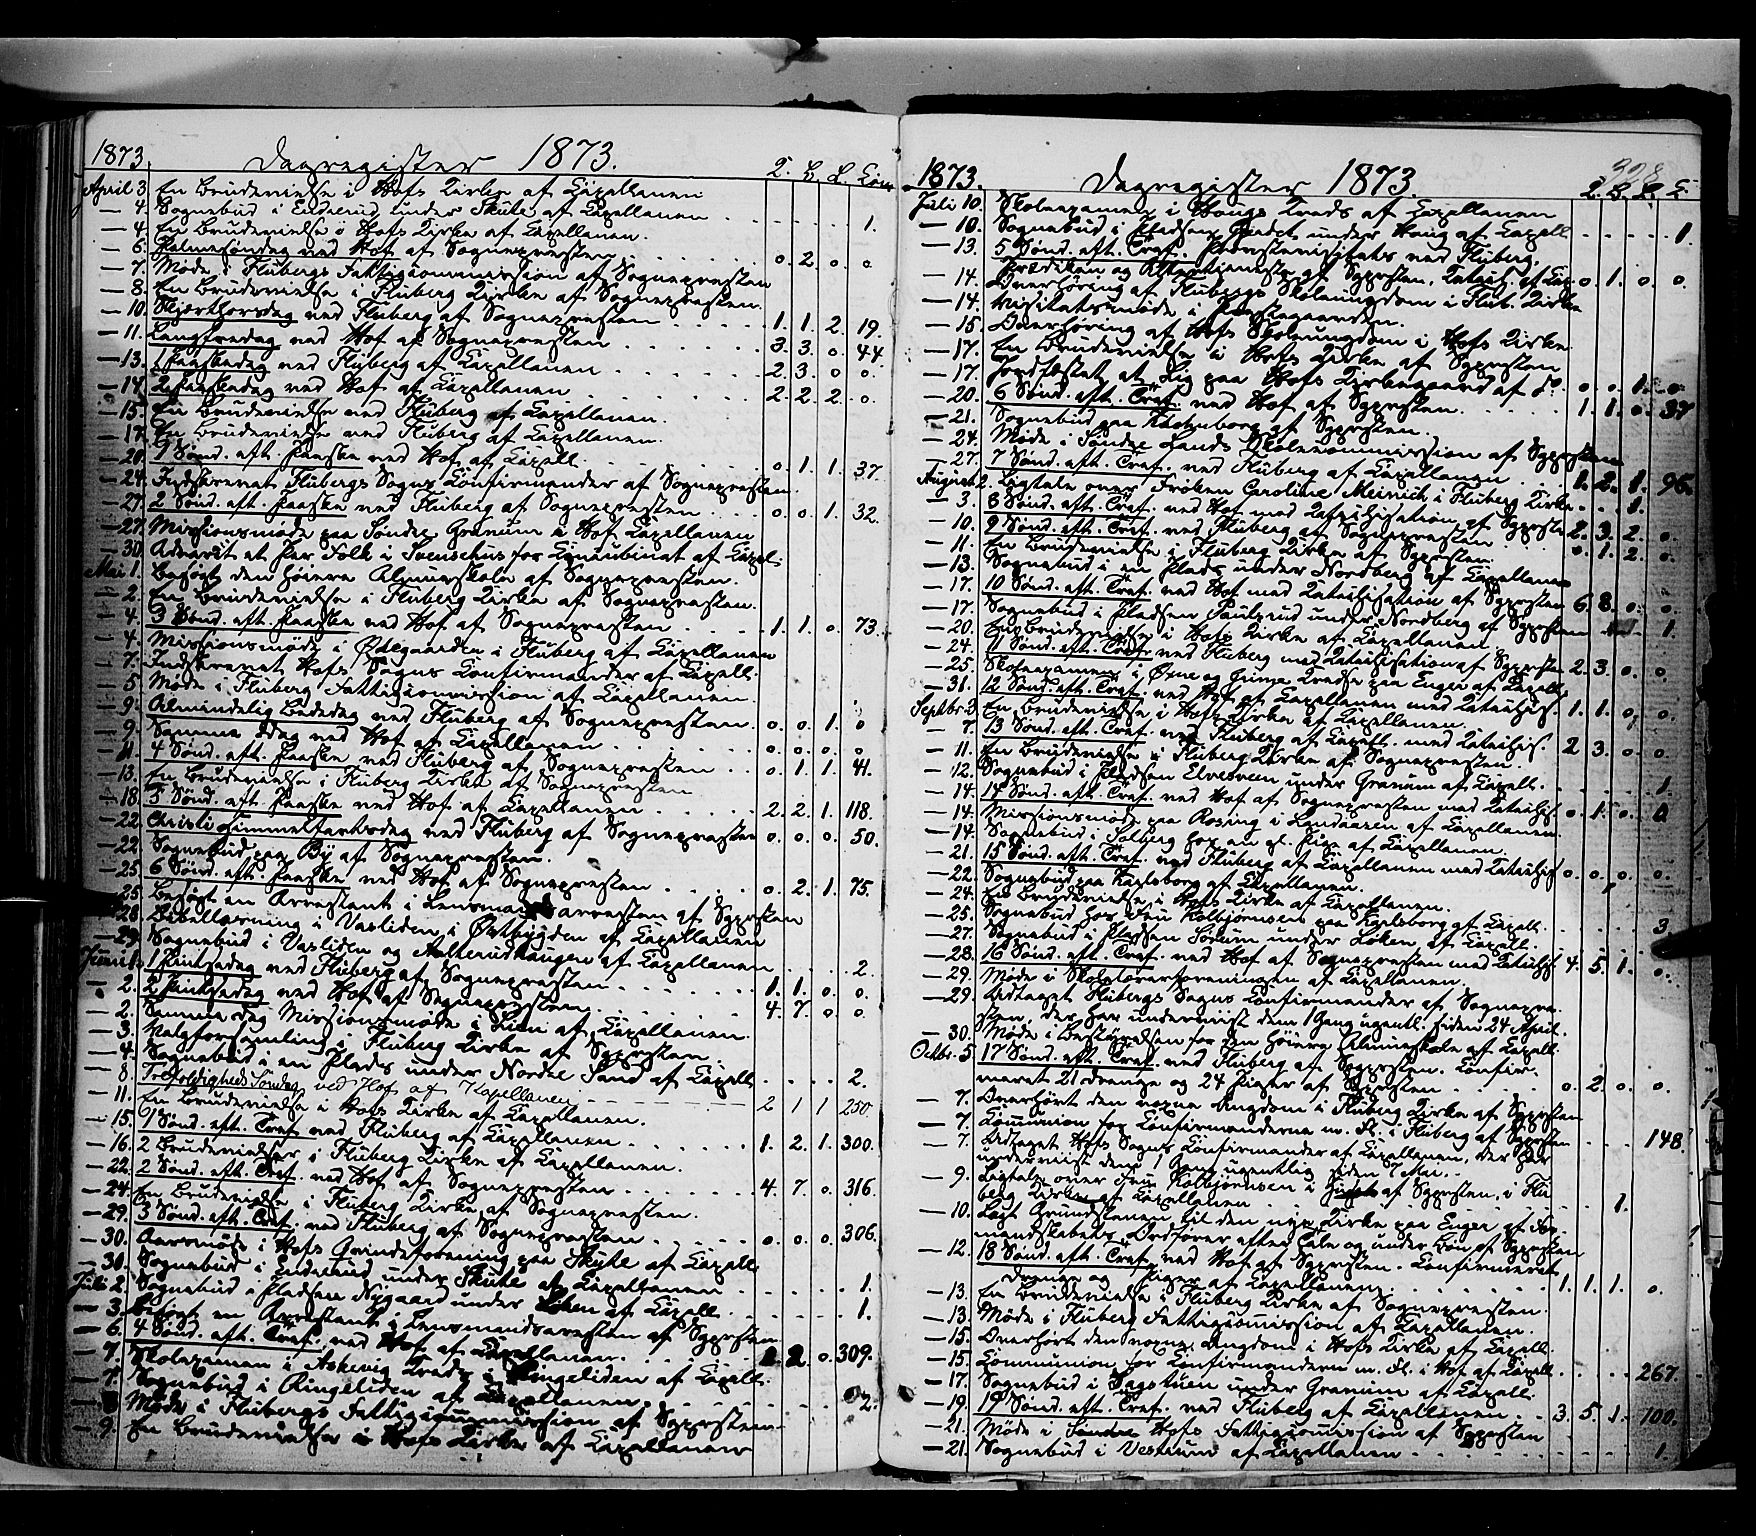 1873. Dagregister 1873. T. B. L. Com
April 3 En Brudevielse i Hofs Kirke af Capellanen
— 4. Sognebud i Enderud under Skute af Capellanen 1.
— 4. En Brudevielse i Hofs Kirke af Capellanen.
— 6. Palmesøndag ved Hof af Sognepresten 0. 2. 0. 0
— 7. Møde i Flubergs Fattigcommission af Sognepresten
— 8. En Brudevielse i Fluberg Kirke af Sognepresten.
— 10. Skjærthorsdag ved Fluberg af Sognepresten 1. 1. 2. 19.
— 11. Langfredag ved Hof af Sognepresten 3. 3. 0. 44
— 13. 1 Paaskedag ved Fluberg af Capellanen 2. 3. 0. 0.
— 14. 2 Paaskedag ved Hof af Capellanen 2. 2. 2. 0.
— 15. En Brudevielse ved Fluberg af Capellanen.
— 17. En Brudevielse ved Fluberg af Capellanen.
— 20. 1 Sønd. eft. Paaske ved Hof af Capell. 0. 1. 1. 37.
— 24. Indskrevet Flubergs Sogns Confirmander af Sognepresten
— 27. 2 Sønd. eft. Paaske ved Fluberg af Sognepresten 0. 0. 1. 32.
— 27. Missionsmøde paa Søndre Granum i Hof Capellanen
— 30. Advaret et Par Folk i Svensehus for Concubinat af Capel.
Mai 1. Besøgt den høiere Almueskole af Sognepresten.
— 2. En Brudevielse i Fluberg Kirke af Sognepresten.
— 4. 3 Sønd. eft. Paaske ved Hof af Sognepresten 1. 1. 0. 73.
— 4. Missionsmøde i Ødegaarden i Fluberg af Capellanen
— 7. Indskrevet Hofs Sogns Confirmander af Capell.
— 5. Møde i Fluberg Fattigcommission af Capellanen.
— 9. Almindelig Bededag ved Fluberg af Sognepresten 0. 0. 1. 0
— 9. Samme Dag ved Hof af Capellanen 0. 0. 0. 0
— 11. 4 Sønd. eft. Paaske ved Fluberg af Sognepresten 0. 1. 1. 41.
— 13. En Brudevielse i Fluberg Kirke af Sognepresten
— 18. 5 Sønd. eft. Paaske ved Hof af Capellanen 2. 2. 1. 118.
— 22. Christi Himmelfartsdag ved Fluberg af Sognepresten 0. 0. 0. 50.
— 22. Sognebud paa By af Sognepresten.
— 25. 6 Sønd. eft. Paaske ved Hof af Sognepresten 0. 2. 1. 75.
— 25. Besøgt en Arrestant i Lensmandsarresten af Sgprsten
— 28. Bibellæsning i Vasliden i Østbygden af Capellanen
— 29. Sognebud i Vasliden og Aalterudhaugen af Capellanen 2.
Juni 1. 1 Pintsedag ved Fluberg af Sognepresten 1. 1. 0. 0.
— 2. 2 Pintsedag ved Hof af Sognepresten 4. 7. 0. 0.
— 2. Samme Dag Missionsmøde i Lien af Capellanen
— 3. Valgforsamling i Fluberg Kirke af Sgprsten.
— 4. Sognebud i en Plads under Nordre Sand af Capell. 2.
8 Trefoldigheds Søndag ved Hof af Kapellanen 2 1 1 250
— 11. En Brudevielse i Hofs Kirke af Capellanen.
— 15. 1 Sønd. eft. Tref. ved Fluberg af Capellanen 1. 2. 1. 300.
— 16. 2 Brudevielser i Fluberg Kirke af Capellanen.
— 22. 2 Sønd. eft. Tref. ved Hof af Sognepresten 4. 7. 0. 316.
— 24. En Brudevielse i Fluberg Kirke af Sognepresten.
— 29. 3 Sønd. eft. Tref. ved Fluberg af Sognepresten 0. 0. 0. 306.
— 30. Aarsmøde i Hofs Qvindeforening paa Skute af Capell.
— 30. Sognebud i Enderud under Skute af Capellanen 1.
Juli 2. Sognebud i Pladsen Nygaard under Løken af Capell. 1.
— 3. Besøgt en Arrestant i Lensmandsarresten af Sgprsten
— 6. 4 Sønd. eft. Tref. ved Hof af Capellanen 2. 2. 0. 309.
— 7. Skolexamen i Askevig Kreds i Ringeliden af Capell.
— 7. Sognebud i Ringeliden af Capellanen. 2.
— 8 Møde i Flubergs Fattigcommission af Sgprsten
— 9. En Brudevielse i Hofs Kirke af Capellanen
398
1873. Dagregister 1873. T. B. L. C.
Juli 10. Skolexamen i Haugs Kreds af Capellanen
— 10. Sognebud i Pladsen under Haug af Capell. 1.
— 13. 5 Sønd. eft. Tref. Provstevisitats ved Fluberg.
Prædiken og Altertjeneste af Sgprsten, Catech. af Cap. 0. 1. 0. 0.
— 14. Overhøring af Flubergs Skoleungdom i Flub. Kirke
— 14. Visitatsmøde i Præstegaarden.
— 15. Overhøring af Hofs Skoleungdom i Hofs Kirke
— 17. En Brudevielse i Hofs Kirke af Sgprsten
— 17. Jordfæstet et Lig paa Hofs Kirkegaard af do. 0. 0. 1. 0.
— 20. 6 Sønd. eft. Tref. ved Hof af Sgprsten. 1. 1. 0. 37
— 21. Sognebud paa af Sgprsten.
— 24. Møde i Søndre Lands Skolecommission af Sgprsten
— 27. 7 Sønd. eft. Tref. ved Fluberg af Capellanen 1. 2. 1. 96.
August 2. Ligtale over Frøken Caroline Meinich i Fluberg Kirke 1.
— 3. 8 Sønd. eft. Tref. ved Hof med Catechisation af Sgprsten 2. 3. 2. 0.
— 10. 9 Sønd. eft. Tref. ved Fluberg af Sognepresten 0. 1. 2. 0.
— 11. En Brudevielse i Fluberg Kirke af Sgprsten.
— 13. Sognebud i en Plads under Nordberg af Capellanen
— 17. 10 Sønd. eft. Tref. ved Hof med Catechisation af Sgprsten 6. 8. 0. 0.
— 17. Sognebud i Pladsen Paulsrud under Nordberg af Sgprsten 1.
— 20. En Brudevielse i Hofs Kirke af Capellanen.
— 24. 11 Sønd. eft. Tref. ved Fluberg med Catechisation af Sgprsten 2. 3. 0. 0.
— 25. Skolexamen i Øvre og Grime Kreds paa Enger af Capell.
— 31. 12 Sønd. eft. Tref. ved Hof af Capellanen med Catechis. 1. 1. 0. 0.
Septbr. 3. En Brudevielse i Hofs Kirke af Capellanen.
— 7. 13 Sønd. eft. Tref. ved Fluberg af Capell. med Catechis. 2. 3. 0. 0.
— 11. En Brudevielse i Fluberg Kirke af Sognepresten.
— 12. Sognebud i Pladsen Elvesveen under Granum af Capell. 1.
— 14. 14 Sønd. eft. Tref. ved Hof af Sognepresten med Catechis. 0. 1. 0. 0
— 14. Missionsmøde paa Rosing i Landaasen af Capellanen.
— 14. Sognebud i Solberg hos en gl. Pige af Capellanen.
— 21. 15 Sønd. eft. Tref. ved Fluberg af Capellanen med Catechis. 0. 0. 0. 0.
— 22. Sognebud paa Karlsborg af Capellanen.
— 24. En Brudevielse i Hofs Kirke af Capellanen.
— 25. Sognebud hos Fru Kolbjørnsen paa Karlsborg af Capell. 3.
— 27. Sognebud i Pladsen Sørum under Løken af Capell.
— 28. 16 Sønd. eft. Tref. ved Hof af Sognepresten med Catechis. 4. 5. 1. 0.
— 29. Møde i Skolelærerforeningen af Capellanen.
— 29 Udtaget Flubergs Sogns Confirmander af Sognepre-
sten, der har underviist dem 1 Gang ugentl. siden 24 April.
— 30. Møde i Bestyrelsen for den høiere Almueskole af Capell.
Octbr. 5. 17 Sønd. eft. Tref. ved Fluberg af Sgprsten. Confir-
meret 21 Drenge og 24 Piger af Sgprsten 0. 2. 0. 0.
— 7. Overhørt den voxne Ungdom i Fluberg Kirke af Sgprsten
— 7. Communion for Confirmanderne m. Fl. i Fluberg af Sgprsten 148.
— 7. Udtaget Hofs Sogns Confirmander af Capellanen, der har
underviist dem 1 Gang ugentlig siden 7 Mai.
— 9. Ligtale over Fru Kolbjørnsen i af Sgprsten, i Flu-
berg Kirke af Capellanen 1.
— 10. Lagt Grundstenen til den nye Kirke paa Enger af For-
mandskabets Ordfører efter Tale og under Bøn af Sgprsten
— 12. 18 Sønd. eft. Tref. ved Hof af Sgprsten. Confirmeret
Drenge og Piger af Capellanen 1. 1. 1. 0.
— 13. En Brudevielse i Fluberg Kirke af Sognepresten.
— 13. Møde i Fluberg Fattigcommission af Capellanen.
— 15. Overhørt den voxne Ungdom i Hofs Kirke af Capell.
— 15. Communion for Confirmanderne m. Fl. i Hof af Capell. 267.
— 17. Sognebud i Bagstuen under Granum af Capell.
— 19. 19 Sønd. eft. Tref. ved Fluberg af Capellanen 3. 5. 1. 100.
— 21. Møde i Hofs Fattigcommission af Sgprsten
— 21. Sognebud i Vestrum af Capellanen 1.